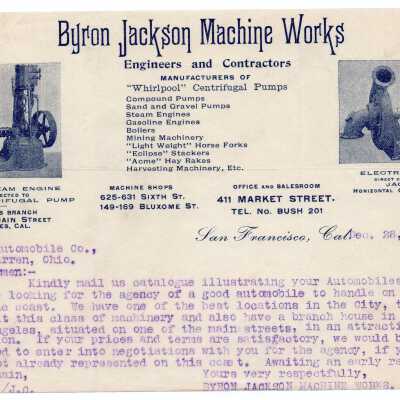 Byron Jackson Machine Works
Engineers and Contractors
MANUFACTURERS OF
"Whirlpool" Centrifugal Pumps
Compound Pumps
Sand and Gravel Pumps
Steam Engines
Gasoline Engines
Boilers
Mining Machinery
"Light Weight" Horse Forks
"Eclipse" Stackers
"Acme" Hay Rakes
Harvesting Machinery, Etc.
EAM ENGINE
ECTED TO
RIFUGAL PUMP
S BRANCH
AIN STREET
ES, CAL.
MACHINE SHOPS
625-631 SIXTH ST.
149-169 BLUXOME ST.
OFFICE AND SALESROOM
411 MARKET STREET.
TEL. No. BUSH 201
ELECTR
DIRECT
JAC
HORIZONTAL
San Francisco, Cal. Dec. 28,
utomobile Co.,
arren, Ohio.
men:-
Kindly mail us catalogue illustrating your Automobiles
e looking for the agency of a good automobile to handle on
c coast. We have one of the best locations in the City, t
it this class of machinery and also have a branch house in
ngeles, situated on one of the main streets, in an attracti
ion. If your prices and terms are satisfactory, we would b
ed to enter into negotiations with you for the agency, if y
ot already represented on this coast. Awaiting an early re
ain, Yours very respectfully,
/J.C. BYRON JACKSON MACHINE WORKS.